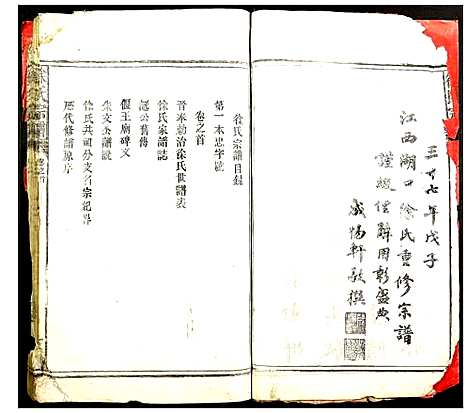 三十七年戊子
江西湖口徐氏重修宗譜
謹綴俚辭用彰盛典
咸惕軒敬撰
徐氏宗譜目錄
第一本忠字號
卷之首
晋朱勅治徐氏世譜表
徐氏家譜誌
認公舊傳
偃王廟碑文
朱文公譜説
徐氏共祖分支名宗紀畧
歷代修譜原序